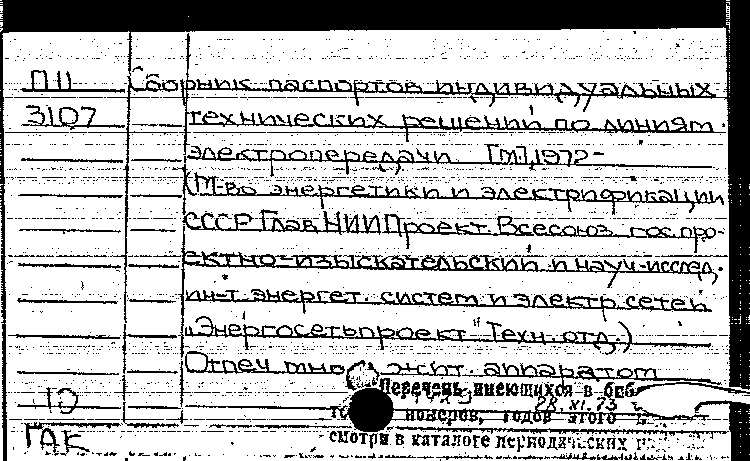 П11 Сборник паспортов индивидуальных
3107 технических решений по линиям
электропередачи [М.],1972-
(М-во энергетики и электрификации
СССР Глав НИИПроект Всесоюз гос про-
ектно-изыскательский и науч-исслед.
ин-т энергет. систем и электр. сетей
„Энергосетьпроект" Техн. отд.)
Отпеч мно жит. аппаратом
Перечень имеющихся в биб
10 28.XI.73
номеров, годов этого
ГАК смотри в каталоге периодических